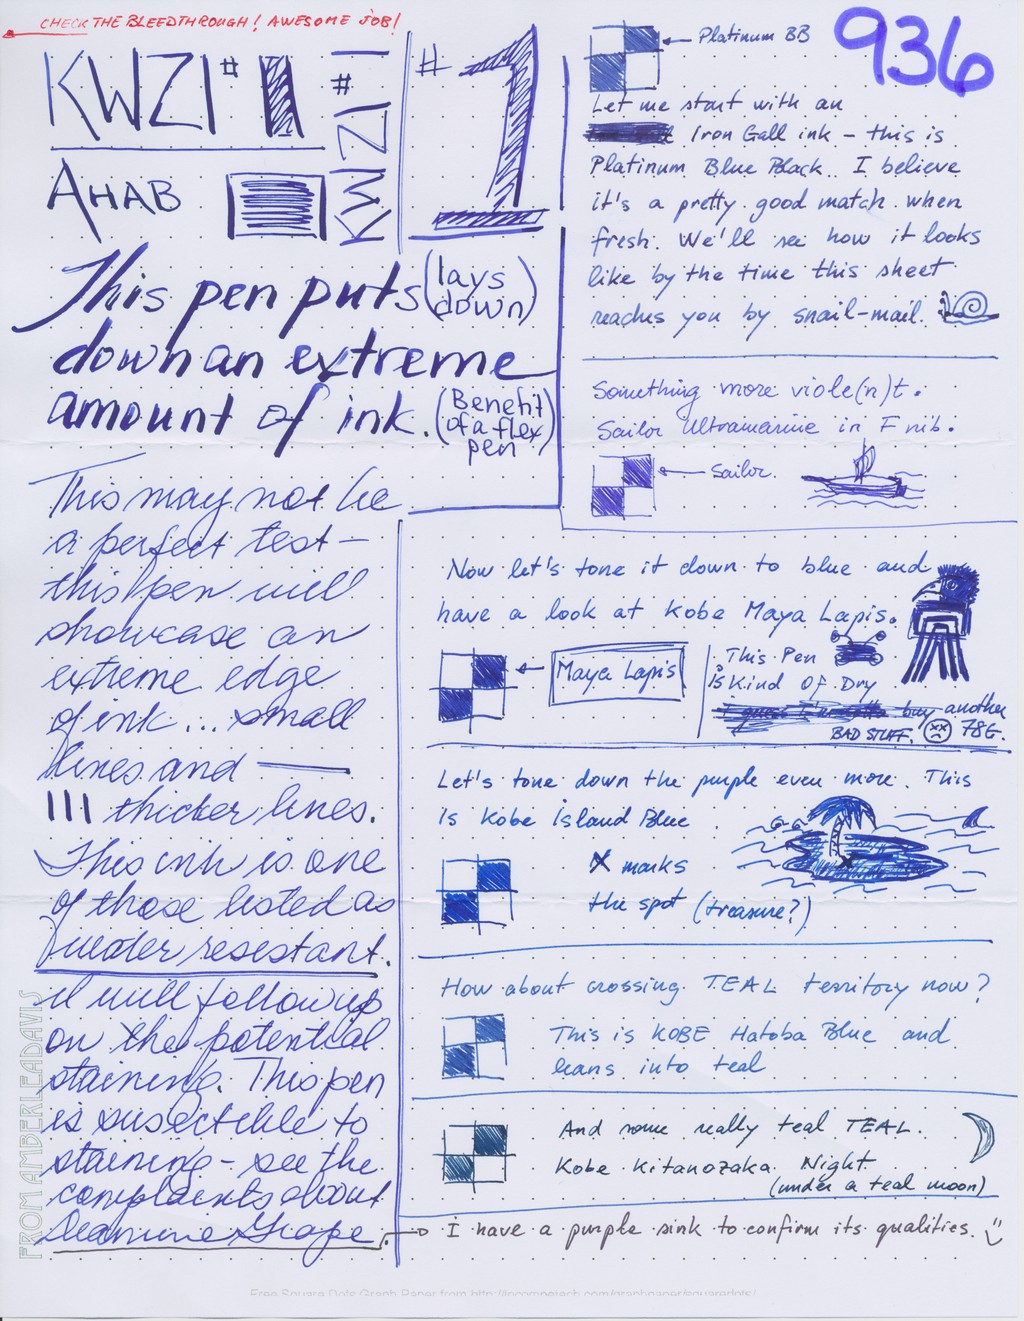 CHECK THE BLEEDTHROUGH! AWESOME JOB!
KWZI #1
KWZI #1
#1
AHAB
This pen puts (lays down)
down an extreme
amount of ink. (Benefit of a flex pen)
This may not be
a perfect test –
this pen will
showcase an
extreme edge
of ink... small
lines and
thicker lines.
This ink is one
of those listed as
water resistant.
I will follow up
on the potential
staining. This pen
is susectible to
staining – see the
complaints about
Grape.
FROM AMBERLEADAVIS
936
Platinum BB
Let me start with an
Iron Gall ink – this is
Platinum Blue Black. I believe
it's a pretty good match when
fresh. We'll see how it looks
like by the time this sheet
reaches you by snail-mail.
Something more viole(n)t.
Sailor Ultramarine in F nib.
Sailor
Now let's tone it down to blue and
have a look at Kobe Maya Lapis.
Maya Lapis
This Pen
is Kind Of Dry
buy another
78G.
BAD STUFF.
Let's tone down the purple even more. This
is Kobe Island Blue
X marks
the spot (treasure?)
How about crossing TEAL territory now?
This is KOBE Hatoba Blue and
leans into teal
And some really teal TEAL.
Kobe Kitanozaka Night
(under a teal moon)
I have a purple sink to confirm its qualities.
Free Square Dots Graph Paper from http://incompetech.com/graphpaper/squaredots/